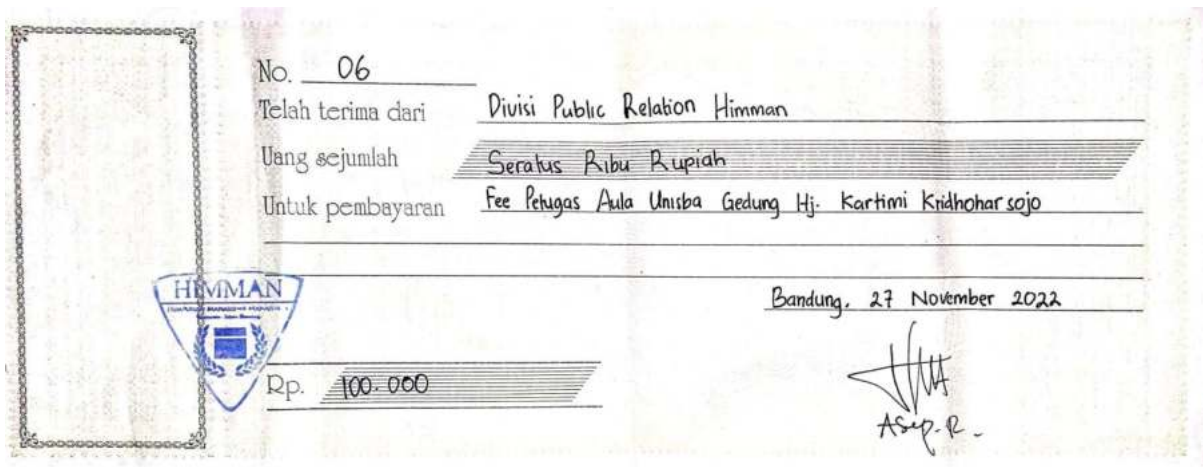 No. 06
Telah terima dari Divisi Public Relation Himman
Uang sejumlah Seratus Ribu Rupiah
Untuk pembayaran Fee Petugas Aula Unisba Gedung Hj. Kartimi Kridhoharsojo
Bandung, 27 November 2022
HIMMAN
Rp. 100.000
Asep. R.